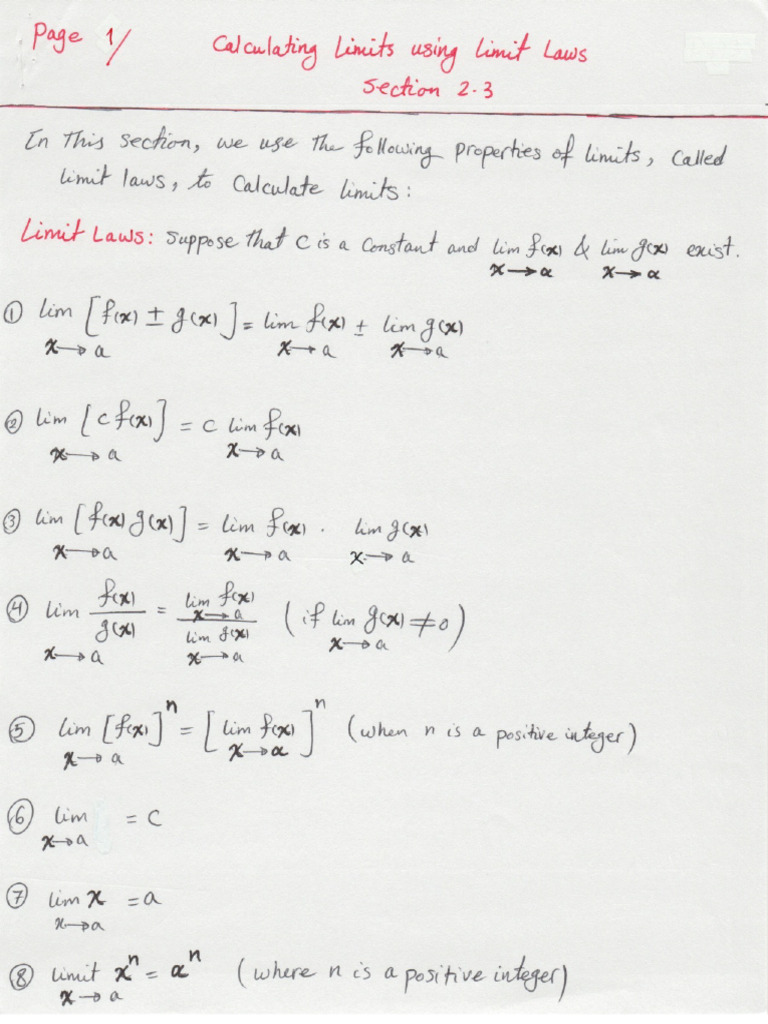 Page 1/ Calculating Limits using Limit Laws
Section 2.3
In This section, we use the following properties of limits, called
limit laws, to calculate limits:
Limit Laws: Suppose that c is a constant and lim f(x) & lim g(x) exist.
x→a x→a
① lim [f(x) ± g(x)] = lim f(x) ± lim g(x)
x→a x→a x→a
② lim [c f(x)] = c lim f(x)
x→a x→a
③ lim [f(x) g(x)] = lim f(x) . lim g(x)
x→a x→a x→a
④ lim f(x)/g(x) = lim f(x)/lim g(x) (if lim g(x) ≠ 0)
x→a x→a x→a x→a
⑤ lim [f(x)]ⁿ = [lim f(x)]ⁿ (when n is a positive integer)
x→a x→a
⑥ lim = c
x→a
⑦ lim x = a
x→a
⑧ limit xⁿ = aⁿ (where n is a positive integer)
x→a